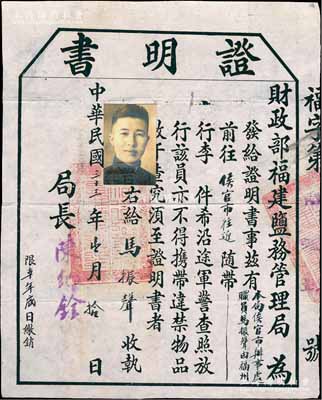 證明書
福字第 號
財政部福建鹽務管理局 為
發給證明書事茲有
本局侯官市辦事處
職員馬振聲由福州
前往 侯官市往返 隨帶
行李 件希沿途軍警查照放
行該員亦不得携帶違禁物品
致干查究須至證明書者
右給 馬振聲 收執
中華民國三十三年 月 拾 日
局長 陳紀銓
限 年 月 日繳銷